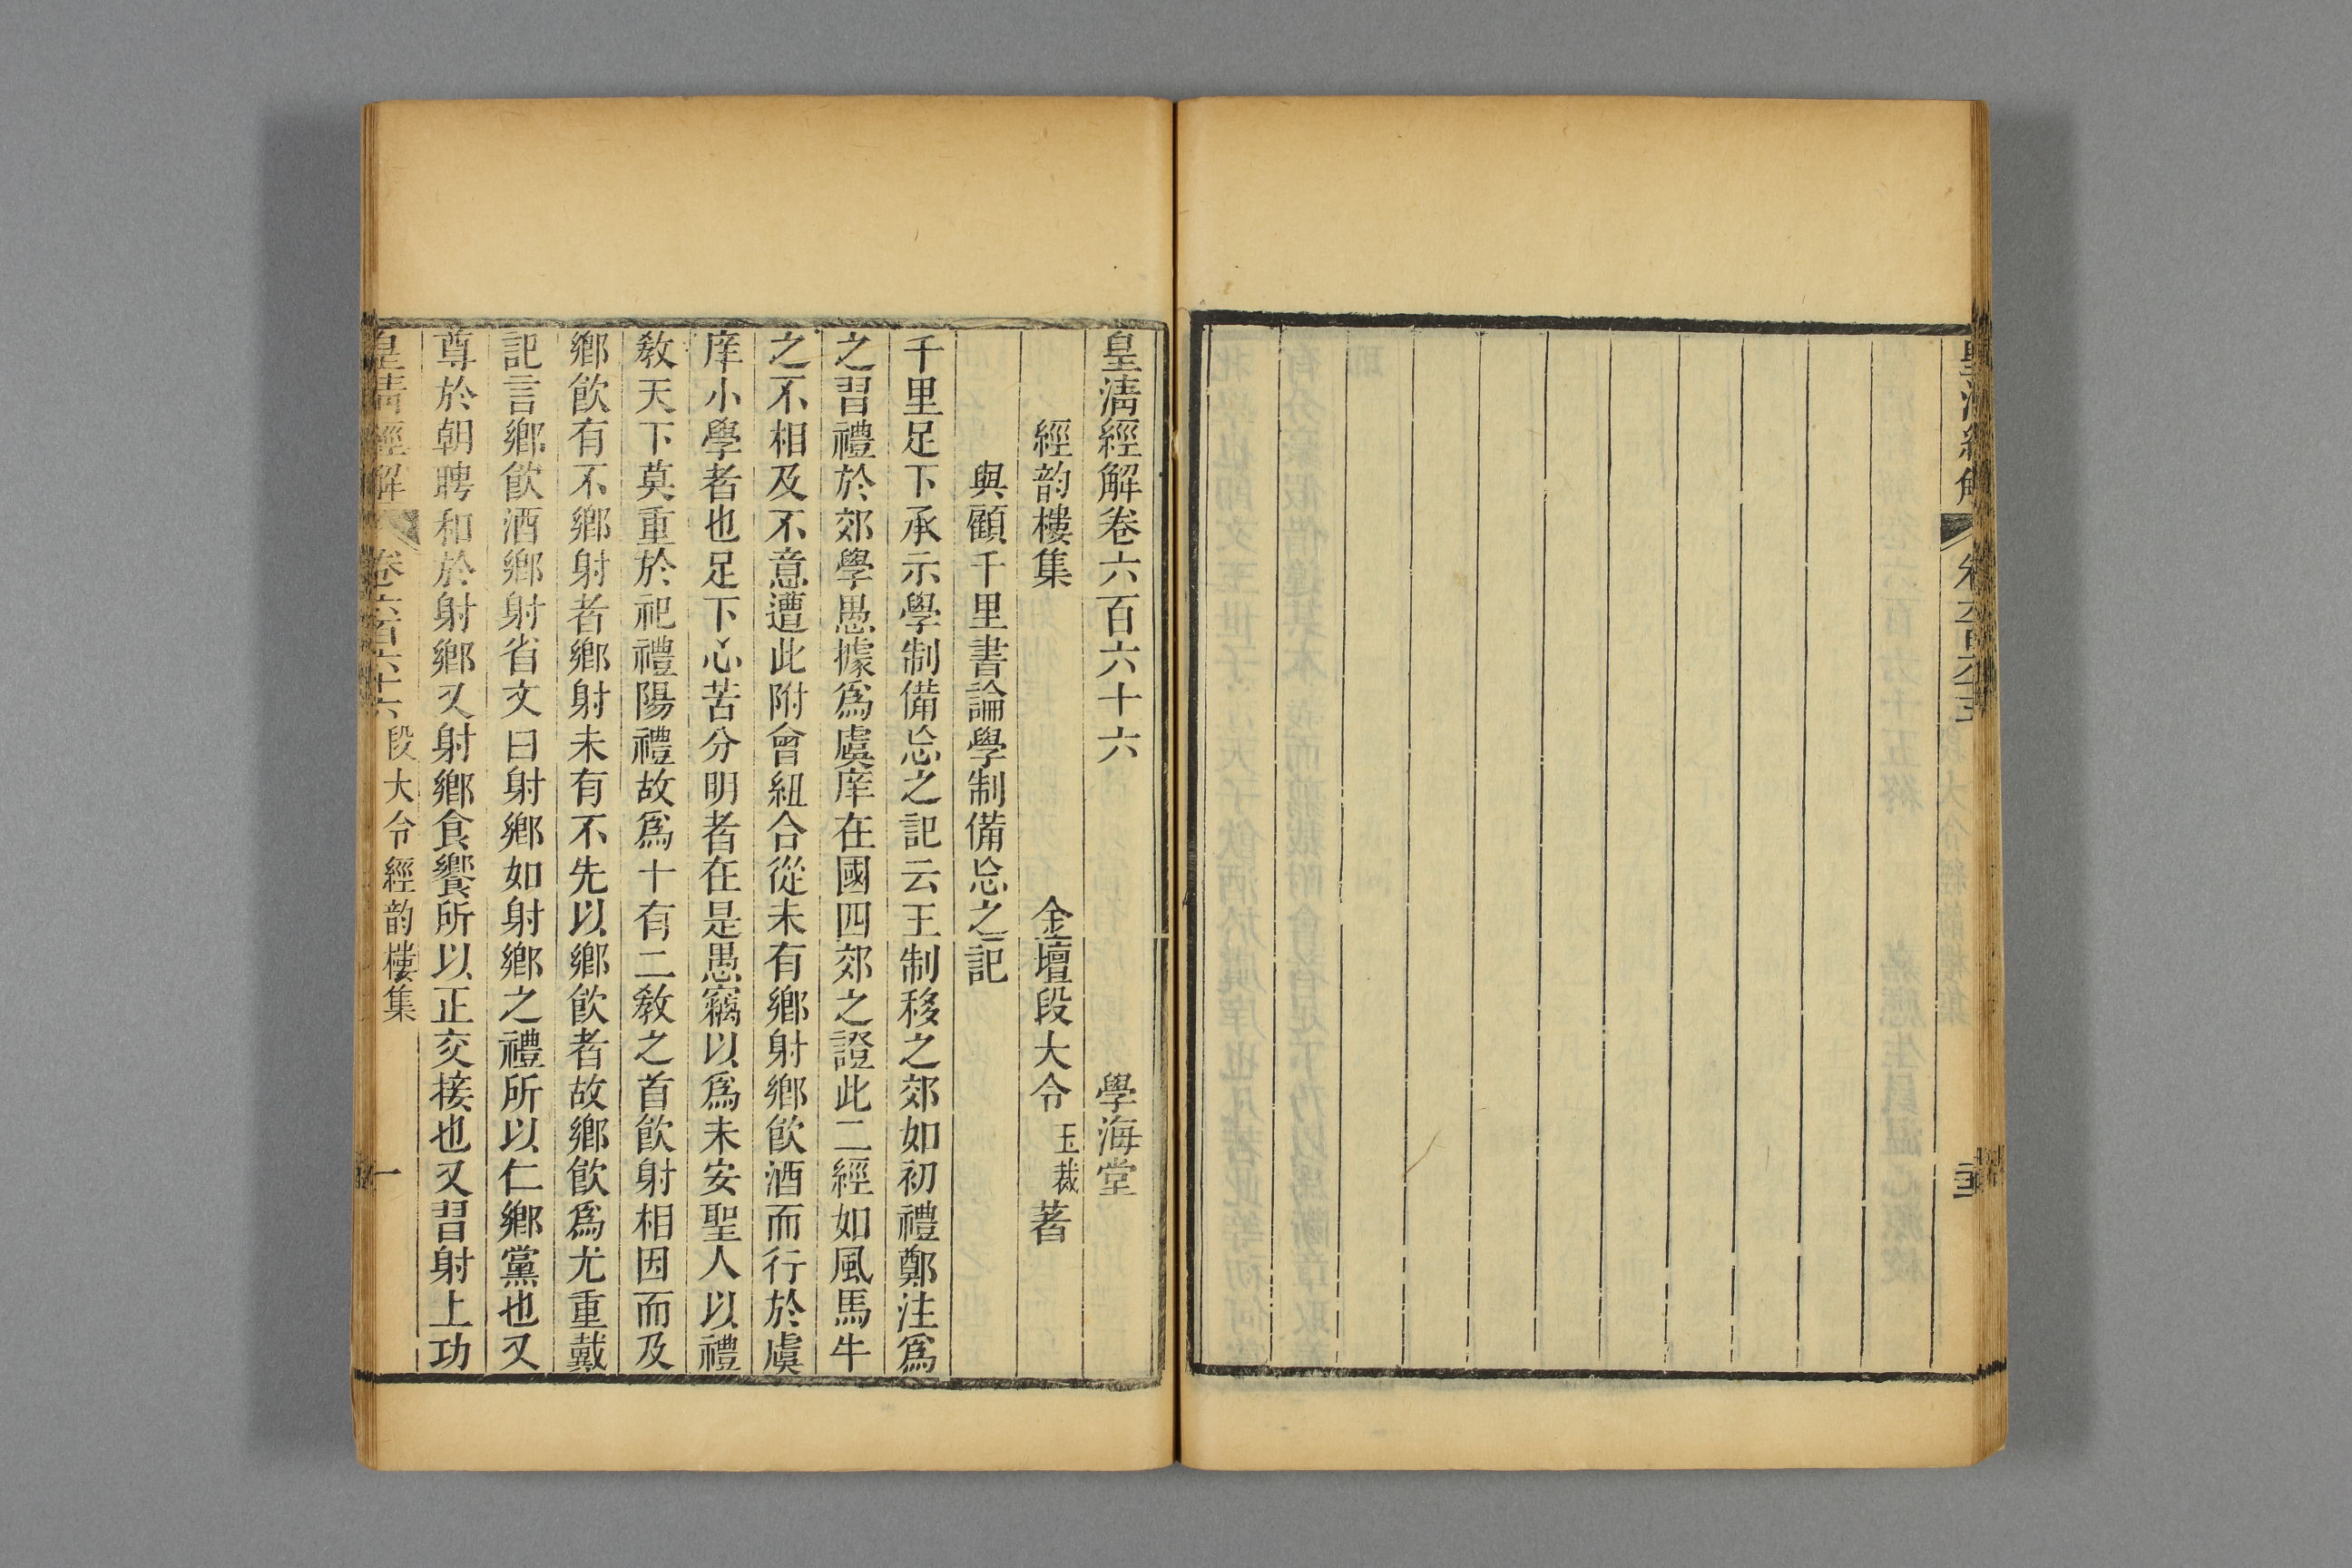 皇清經解卷六百六十六 學海堂
經韵樓集 金壇段大令玉裁著
與顧千里書論學制備忘之記
千里足下承示學制備忘之記云王制移之郊如初禮鄭注爲
之習禮於郊學愚據爲虞庠在國四郊之證此二經如風馬牛
之不相及不意遭此附會紐合從未有鄉射鄉飮酒而行於虞
庠小學者也足下心苦分明者在是愚竊以爲未安聖人以禮
敎天下莫重於祀禮陽禮故爲十有二敎之首飮射相因而及
鄉飮有不鄉射者鄉射未有不先以鄉飮者故鄉飮爲尤重戴
記言鄉飮酒鄉射省文曰射鄉如射鄉之禮所以仁鄉黨也又
尊於朝聘和於射鄉又射鄉食饗所以正交接也又習射上功
皇清經解 卷六百六十六 段大令經韵樓集 一